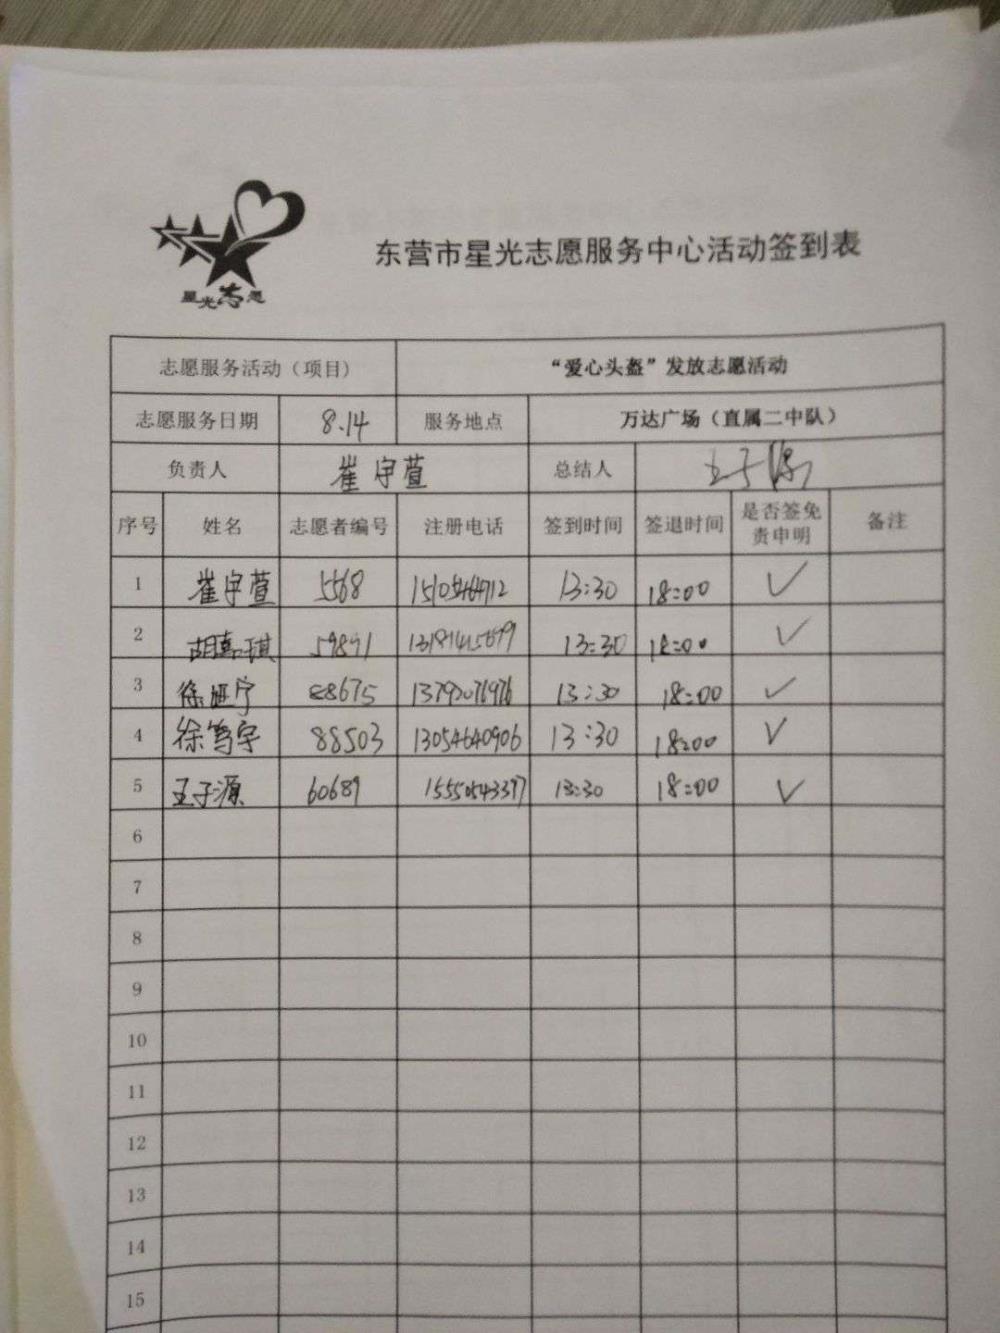 星光志愿
东营市星光志愿服务中心活动签到表
志愿服务活动（项目） “爱心头盔”发放志愿活动
志愿服务日期 8.14 服务地点 万达广场（直属二中队）
负责人 崔宇萱 总结人 王子源
序号 姓名 志愿者编号 注册电话 签到时间 签退时间 是否签免责申明 备注
1 崔宇萱 5568 13:30 18:00 ✓
2 胡嘉琪 59891 13:30 18:00 ✓
3 徐 宁 88675 13:30 18:00 ✓
4 徐笃宇 88503 13054640906 13:30 18:00 ✓
5 王子源 60689 15550543397 13:30 18:00 ✓
6
7
8
9
10
11
12
13
14
15